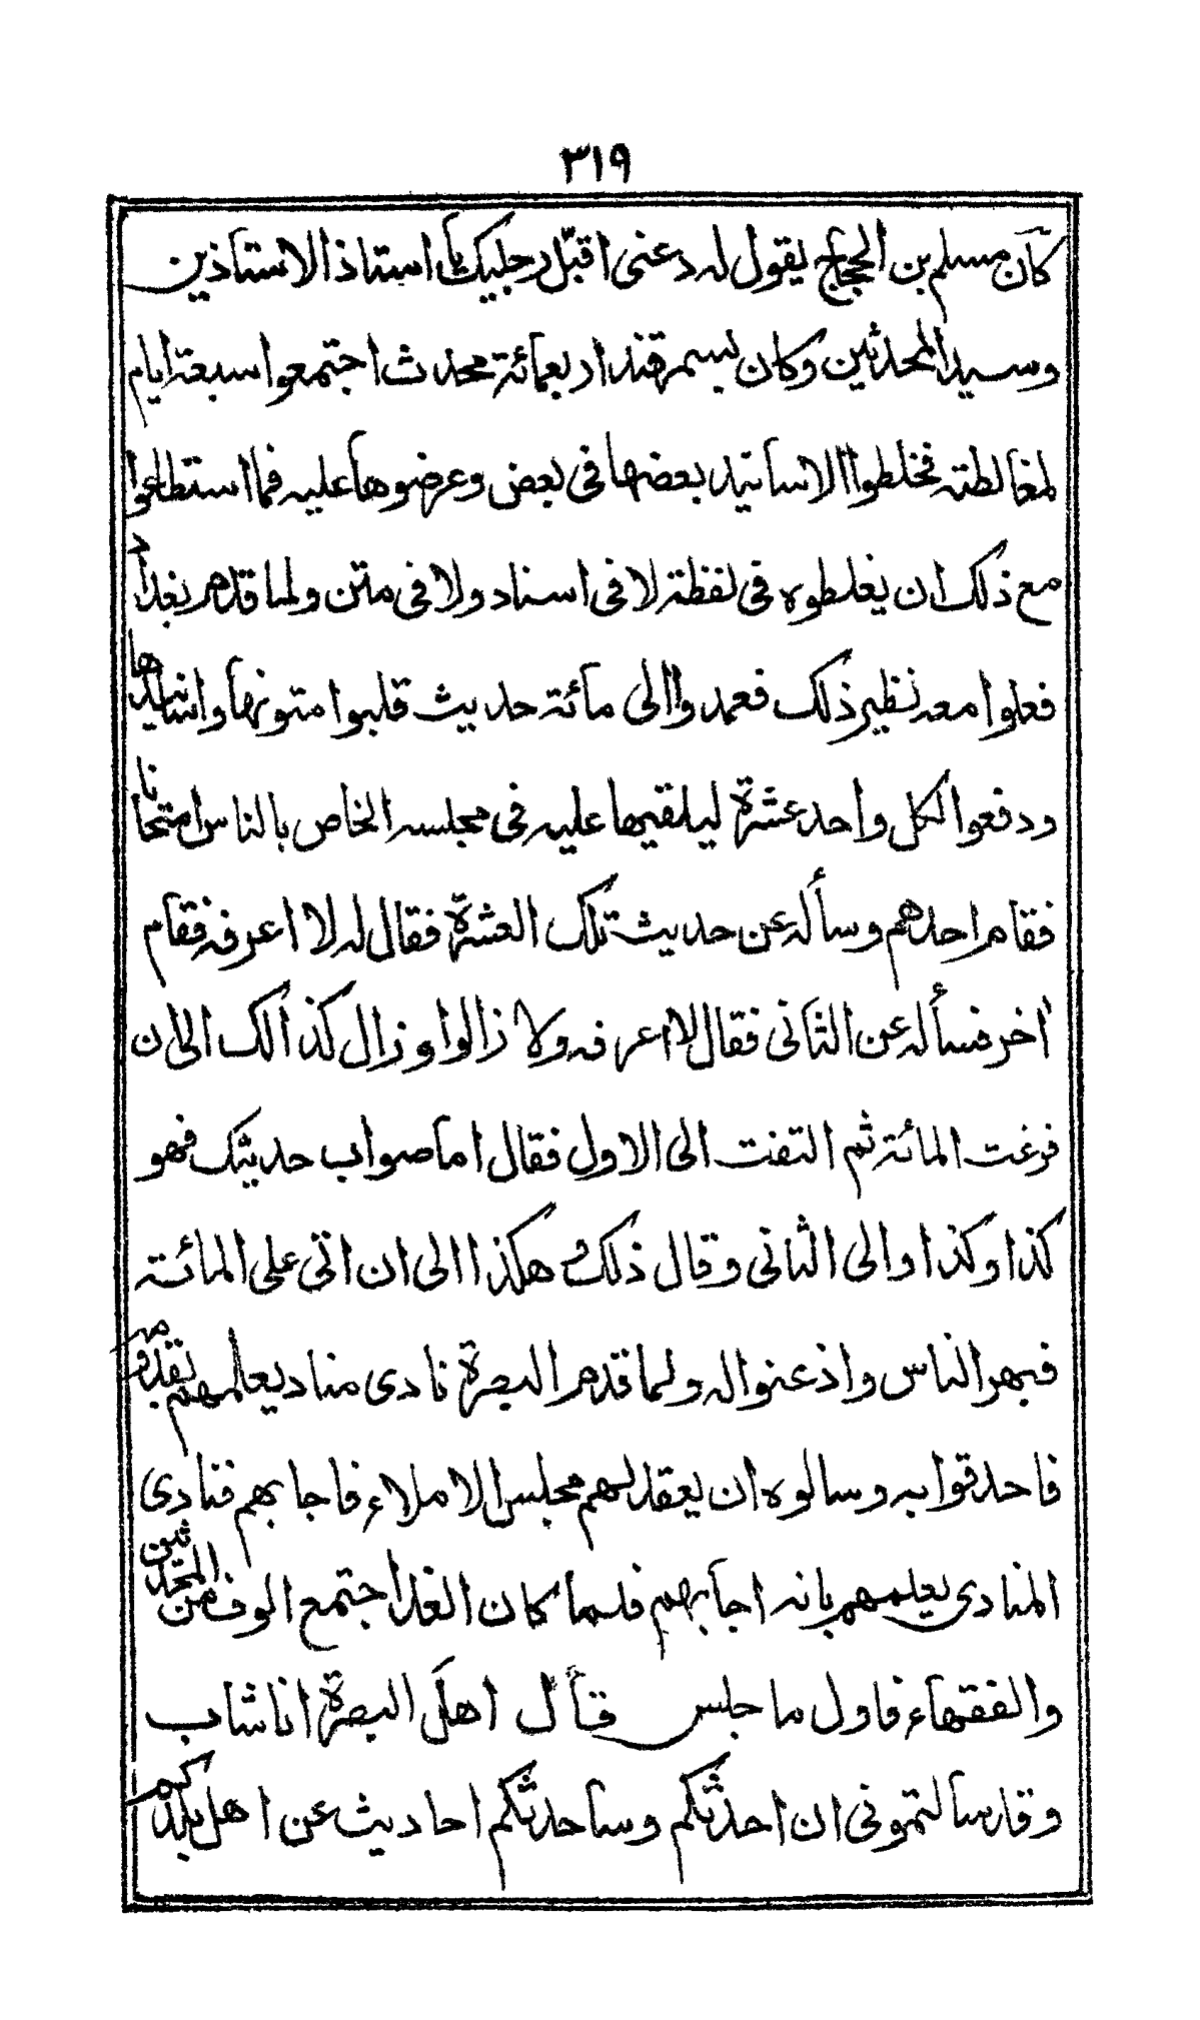 ٣١٩
كان مسلم بن الحجاج يقول له دعنى اقبّل رجليك يا استاذ الاستاذين
وسيد المحدثين وكان بسمرقند اربعمائة محدث اجتمعوا سبعة ايام
لمغالطته فخلطوا الاسانيد بعضها فى بعض وعرضوها عليه فما استطاعوا
مع ذلك ان يغلطوه فى لفظة لا فى اسناد ولا فى متن ولما قدم بغداد
فعلوا معه نظير ذلك فعمدوا الى مائة حديث قلبوا متونها واسانيدها
ودفعوا لكل واحد عشرة ليلقيها عليه فى مجلسه الخاص بالناس امتحانا
فقام احدهم وسأله عن حديث تلك العشرة فقال له لا اعرفه فقام
اخر فسأله عن الثانى فقال لا اعرفه ولا زالوا و زال كذالك الى ان
فرغت المائة ثم التفت الى الاول فقال اما صواب حديثك فهو
كذا وكذا والى الثانى وقال ذلك هكذا الى ان اتى على المائة
فبهر الناس واذعنوا له ولما قدم البصرة نادى مناد يعلمهم بقدومه
فاحدقوا به وسالوه ان يعقد لهم مجلس الاملاء فاجابهم فنادى
المنادى يعلمهم بانه اجابهم فلما كان الغد اجتمع الوف من المحدثين
والفقهاء فاول ما جلس قال اهل البصرة انا شاب
وقد سالتمونى ان احدثكم وساحدثكم احاديث عن اهل بلدكم